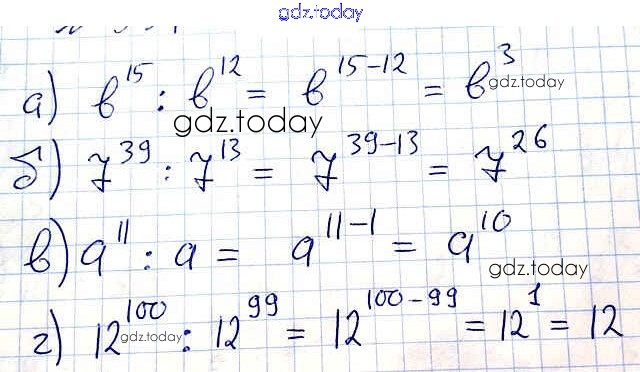 gdz.today
а) b¹⁵ : b¹² = b¹⁵⁻¹² = b³
gdz.today
gdz.today
б) 7³⁹ : 7¹³ = 7³⁹⁻¹³ = 7²⁶
в) a¹¹ : a = a¹¹⁻¹ = a¹⁰
gdz.today
г) 12¹⁰⁰ : 12⁹⁹ = 12¹⁰⁰⁻⁹⁹ = 12¹ = 12
gdz.today